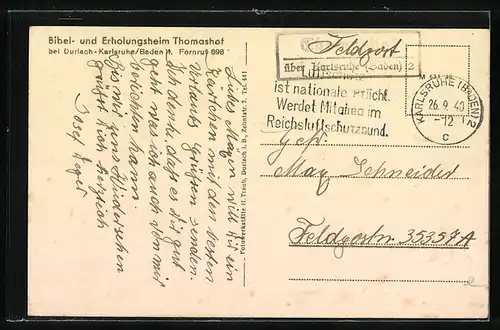 Bibel- und Erholungsheim Thomashof
bei Durlach-Karlsruhe/Baden 1. Fernruf 698
Liebes Maxen will Dir ein
Kärtchen mit den besten
Urlaubs Grüßen senden.
Ich denke, daß es Dir gut
geht was ich auch von mir
berichten kann.
Bis auf zum Wiedersehen
grüßt Dich herzlich
Josef
Fotowerkstätte H. Traub, Durlach i. B., Zehntstr. 7. Tel. 441
Feldpost
über Karlsruhe (Baden) 2
Luftschutz
ist nationale Pflicht.
Werdet Mitglied im
Reichsluftschutzbund.
KARLSRUHE (BADEN) 2
26. 9. 40
-12
c
Gefr.
Max Schneider
Feldpostnr. 35357A